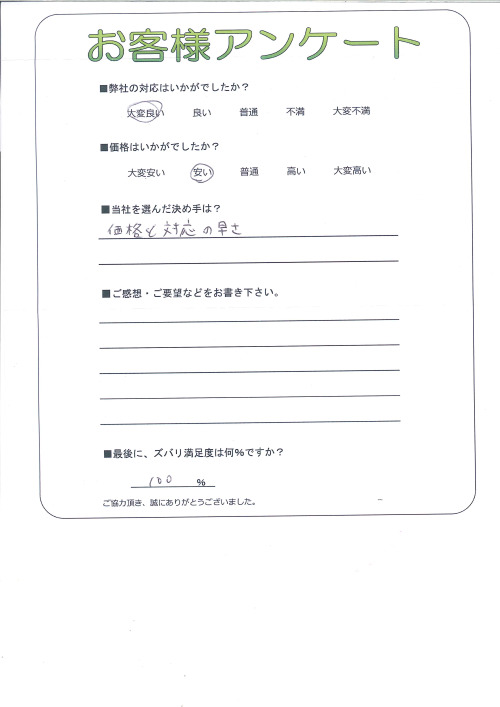 お客様アンケート
■弊社の対応はいかがでしたか？
大変良い 良い 普通 不満 大変不満
■価格はいかがでしたか？
大変安い 安い 普通 高い 大変高い
■当社を選んだ決め手は？
価格と対応の早さ
■ご感想・ご要望などをお書き下さい。
■最後に、ズバリ満足度は何%ですか？
100 %
ご協力頂き、誠にありがとうございました。